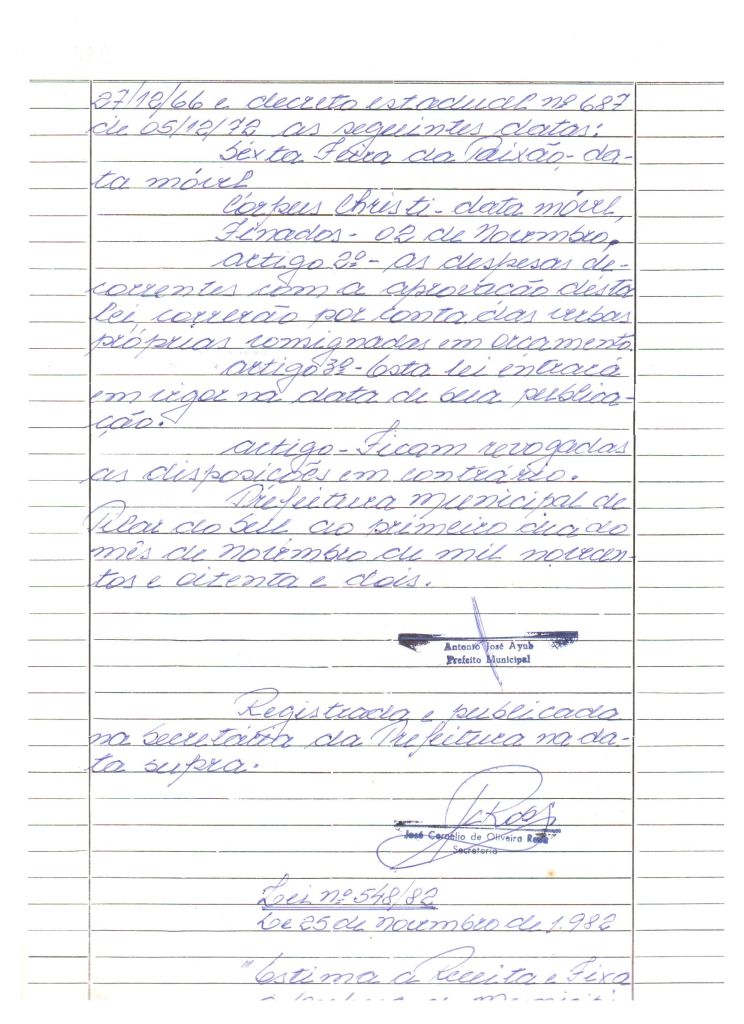 27/12/66 e decreto estadual nº 687
de 05/12/72 as seguintes datas:
Sexta Feira da Paixão - da-
ta móvel
Córpus Christi - data móvel,
Finados - 02 de Novembro.
artigo 2º - As despesas de-
correntes com a aprovação desta
lei correrão por conta das verbas
próprias consignadas em orçamento.
artigo 3º - Esta lei entrará
em vigor na data de sua publica-
ção.
artigo - Ficam revogadas
as disposições em contrário.
Prefeitura Municipal de
Pilar do Sul ao primeiro dia do
mês de novembro de mil novecen-
tos e oitenta e dois.
Antonio José Ayub
Prefeito Municipal
Registrada e publicada
na Secretária da Prefeitura na da-
ta supra.
José Cornelio de Oliveira Rosa
Secretario
Lei nº 548/82
De 25 de novembro de 1.982
"Estima a Receita e Fixa